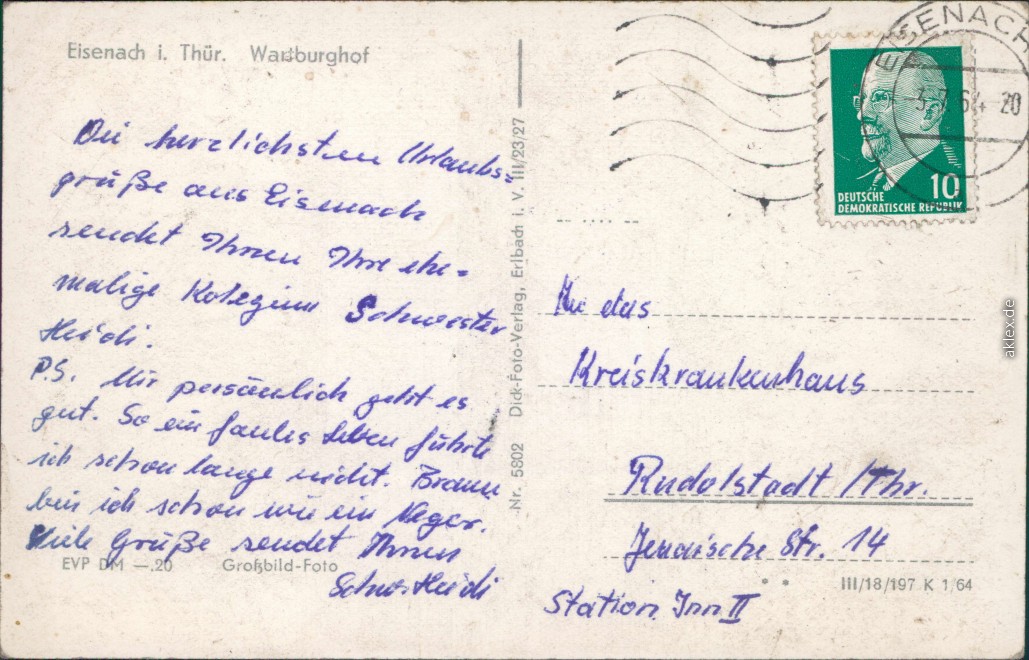 Eisenach i. Thür. Wartburghof
Die herzlichsten Urlaubs=
grüße aus Eisenach
sendet Ihnen Ihre ehe=
malige Kolegin Schwester
Heidi.
P.S. Mir persönlich geht es
gut. So ein faules Leben führte
ich schon lange nicht. Braun
bin ich schon wie ein Neger.
Viele Grüße sendet Ihnen
Schw. Heidi
EVP DM —.20 Großbild-Foto
Nr. 5802 Dick-Foto-Verlag, Erlbach i. V. III/23/27
EISENACH
3.7.64-20
10
DEUTSCHE
DEMOKRATISCHE REPUBLIK
An das
Kreiskrankenhaus
Rudolstadt /Thr.
Jenaische Str. 14
Station Inn II
III/18/197 K 1/64
aklex.de